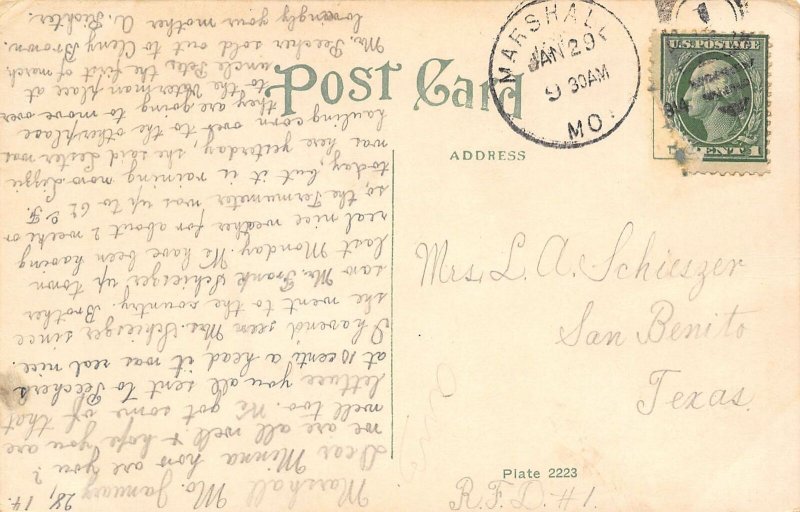 Post Card
MARSHALL
JAN 29
9 30AM
MO.
1
U.S. POSTAGE
CENT 1
ADDRESS
Mrs. L. A. Schieszer
San Benito
Texas.
Plate 2223
R.F.D. #1.
Marshall Mo. January 28, 14.
Dear Minna how are you?
we are all well & hope you are
well too. We got some of that
lettuce you all sent to Peechers
at 10 cents a head it was real nice.
I havend seen Mrs. Schieszer since
she went to the country. Brother
saw Mr. Frank Schieszer up town
last Monday. We have been having
real nice weather for about 2 weeks or
so, the Termumeter was up to 62 O. F.
today, but it is raining now. Lizzie
was here yesterday, she said Lester was
hauling corn over to the other place
they are going to move over
to the Waterman place at
uncle Petes the first of march,
Mr. Peecher sold out to Cleny Brown.
lovingly your mother A. Richter.